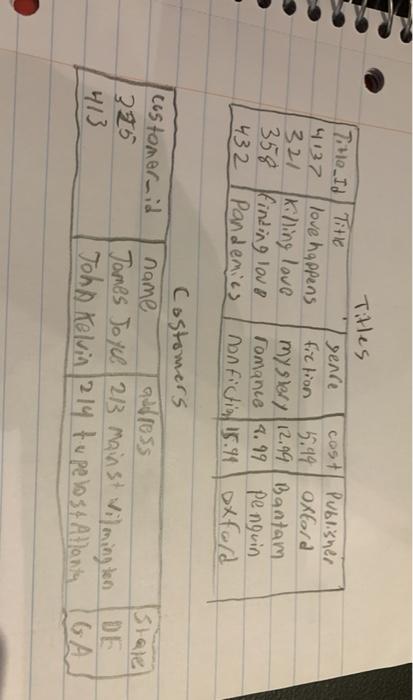 Titles
Title_Id Title genre cost Publisher
4137 love happens fiction 5.99 oxford
321 killing love mystery 12.99 Bantam
358 finding love romance 9.99 penguin
432 Pandemics nonfiction 15.99 oxford
Costomers
costomer_id name address State
325 James Joyce 213 main st wilmington DE
413 John Kelvin 214 st Atlanta GA